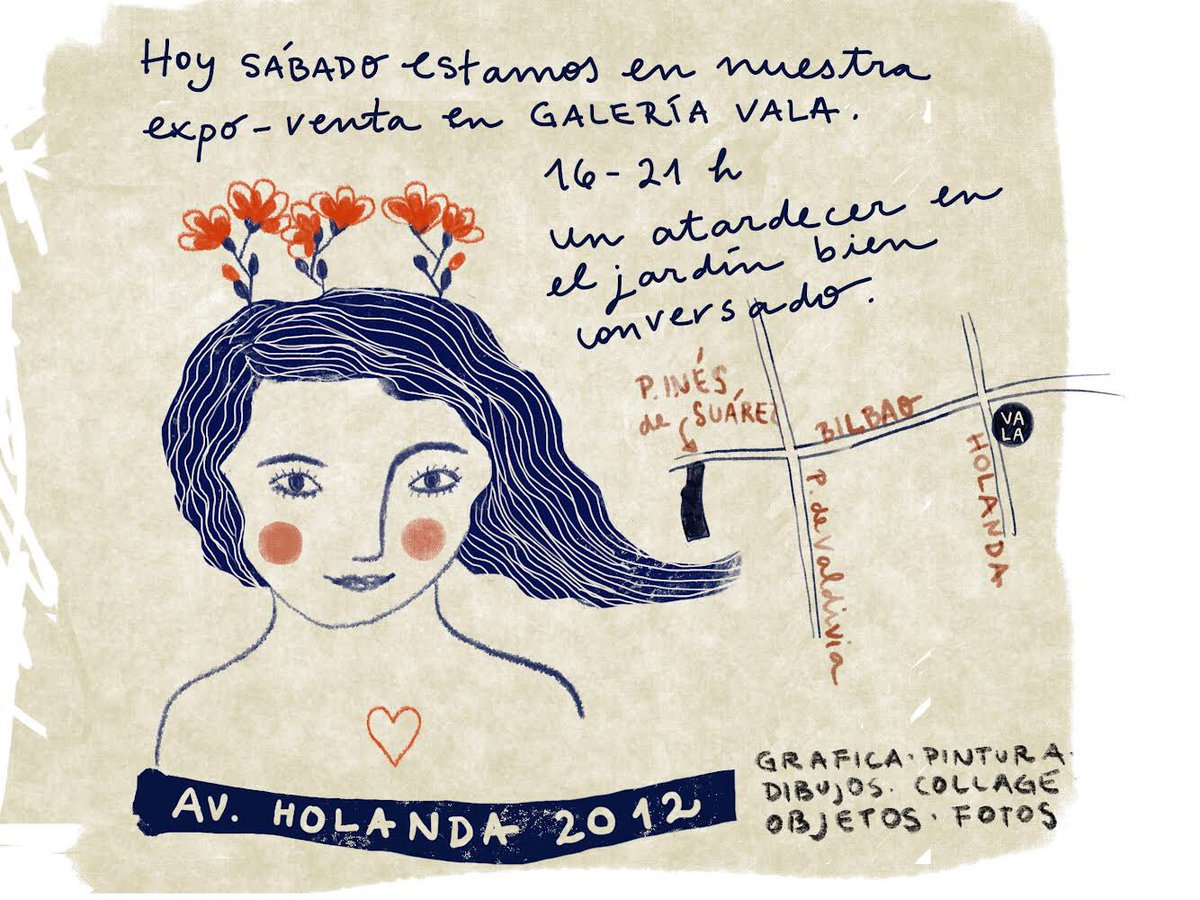 Hoy SÁBADO estamos en nuestra
expo-venta en GALERÍA VALA.
16-21 h
un atardecer en
el jardín bien
conversado.
P. INÉS
de SUÁREZ
BILBAO
VA
LA
HOLANDA
P. de Valdivia
GRAFICA · PINTURA ·
DIBUJOS · COLLAGE
OBJETOS · FOTOS
AV. HOLANDA 2012